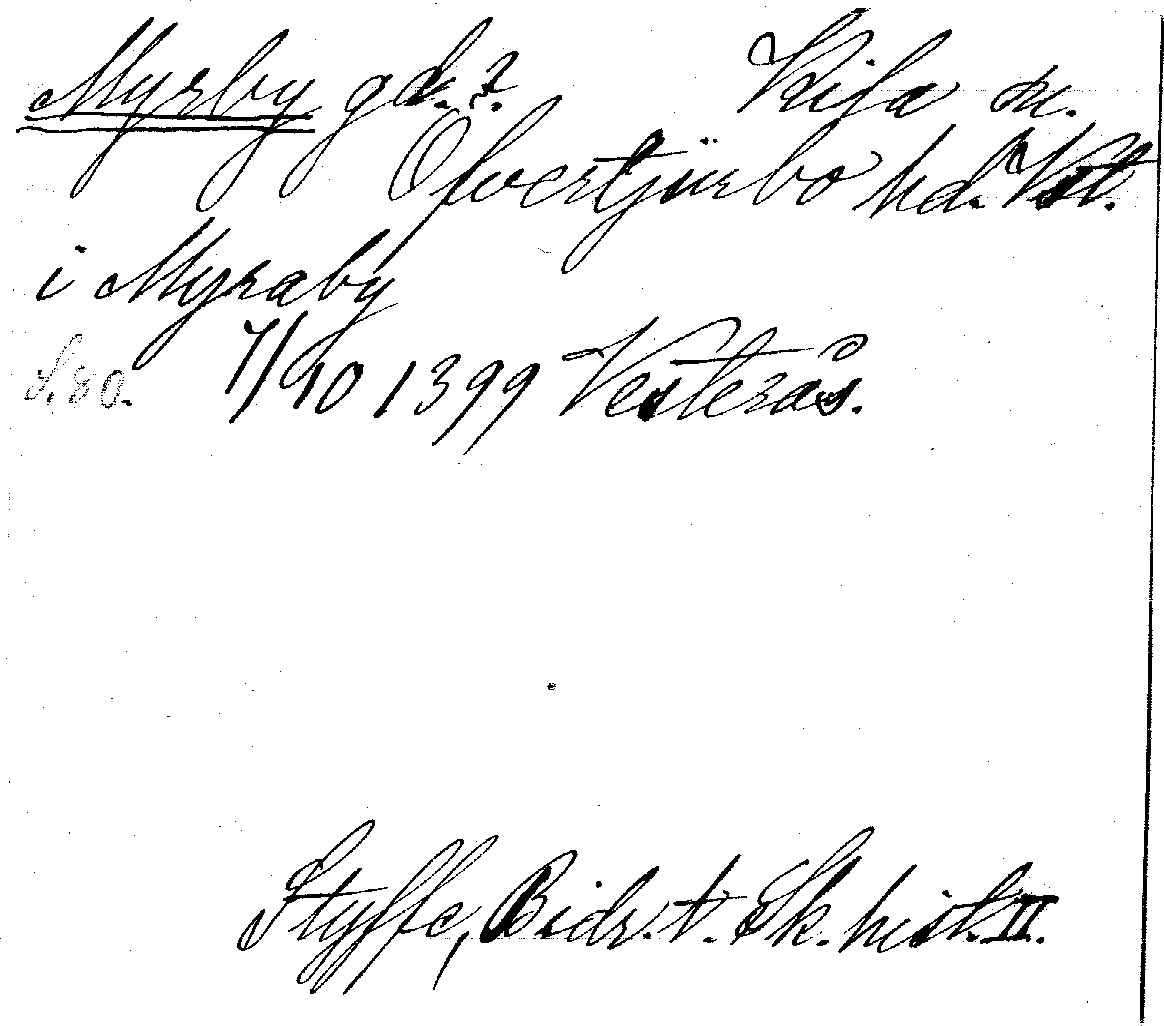 Myrby gd.? Kila sn.
Öfvertjurbo hd. Vstm.
i Myraby
S. 80. 7/10 1399 Vesterås.
Styffe, Bidr. t. Sk. hist. II.